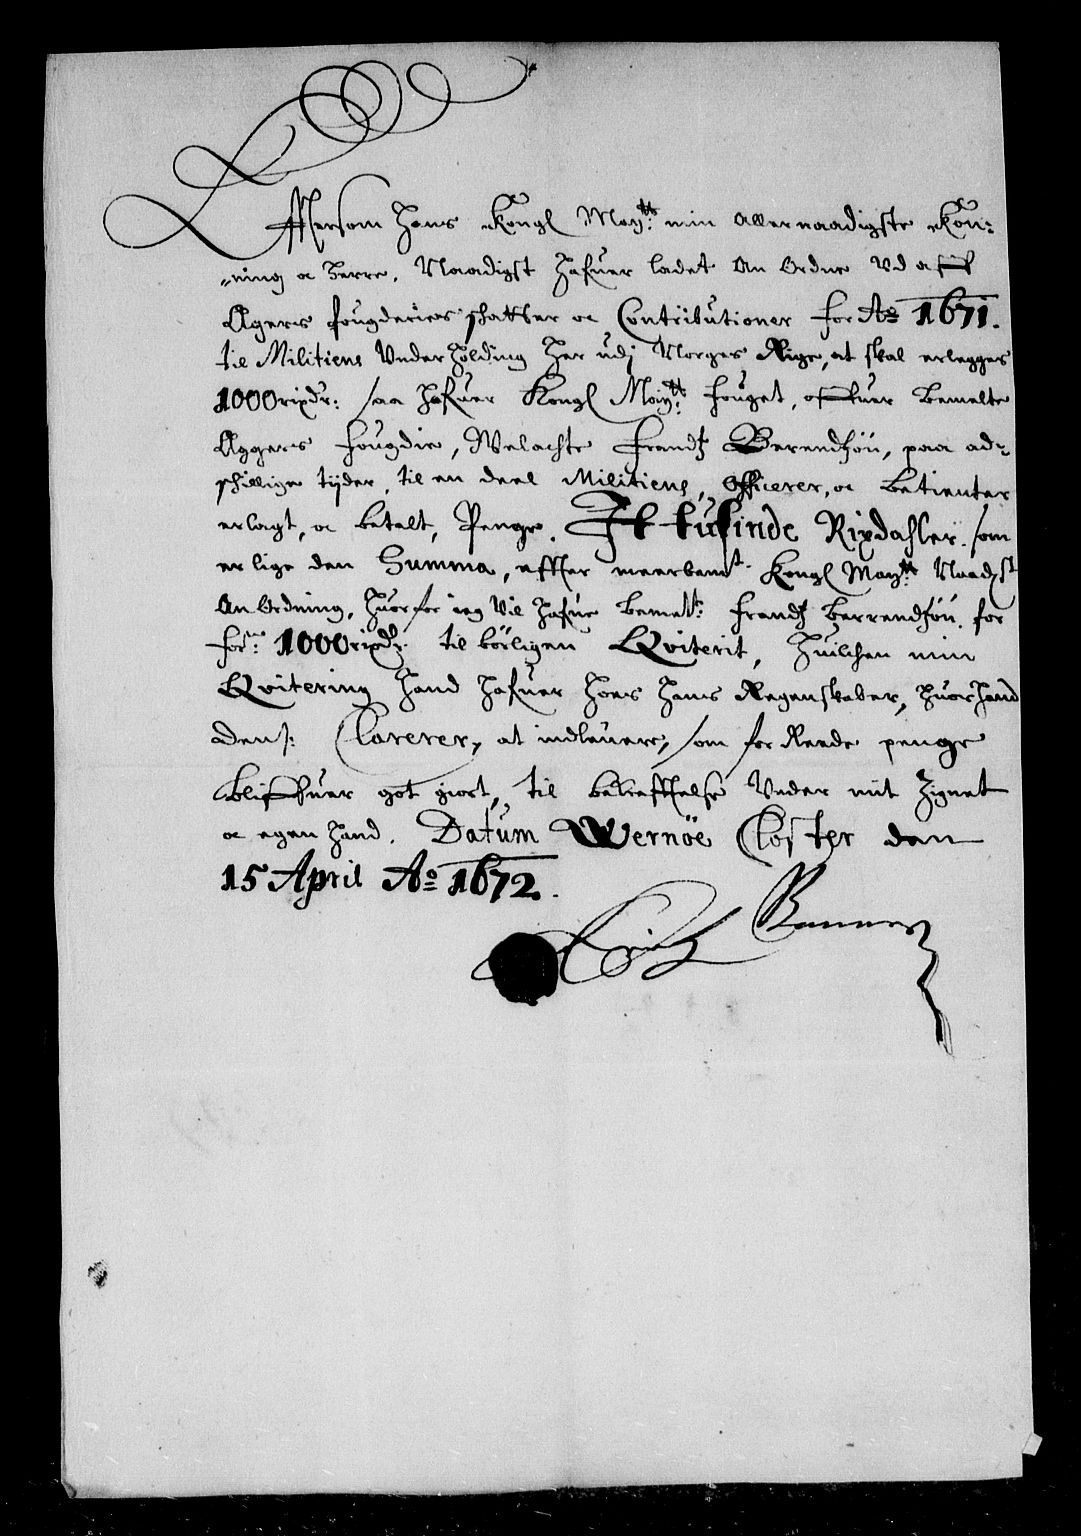 Effttersom Hans Kongl Mayᵗᵗ: min Allernaadigste Kon-
„ning oc Herre, Naadigst hafuer ladet An Ordne Vd aff
Agers fougderies schatter oc Contributioner for Aᵒ 1671.
til Militiens Vnderholding Her udj Norges Rige, at skal erlegges
1000 rixdr: saa hafuer Kongl Mayᵗᵗ: fouget, offuer bemelte
Aggers fougdie, Welachte Frandtz Berendtzøn, paa ad-
schillige tijder, til en deel Militiens, Officerer, oc betienter
erlagt, oc betalt, Penge. Et tusinde Rixdahler. som
er lige den Summa, effter meerbemᵗ. Kongl Mayᵗᵗ Naadigst
An Ordning, Huorfor ieg Vil hafue bemelᵗᵉ: Frandtz Berrendtzøn for
forⁿᵉ 1000 rixdr. tilbørligen Qviterit, Huilchen min
Qvitering hand hafuer hoes hans Regenskaber, huor hand
dens: Clarerer, at indleuere, som for Reede penge
bliffuer got giort, til bekrefftelse Vnder mit Zignet
oc egen hand. Datum Wernøe Closter den
15 April Aᵒ 1672.
Banner